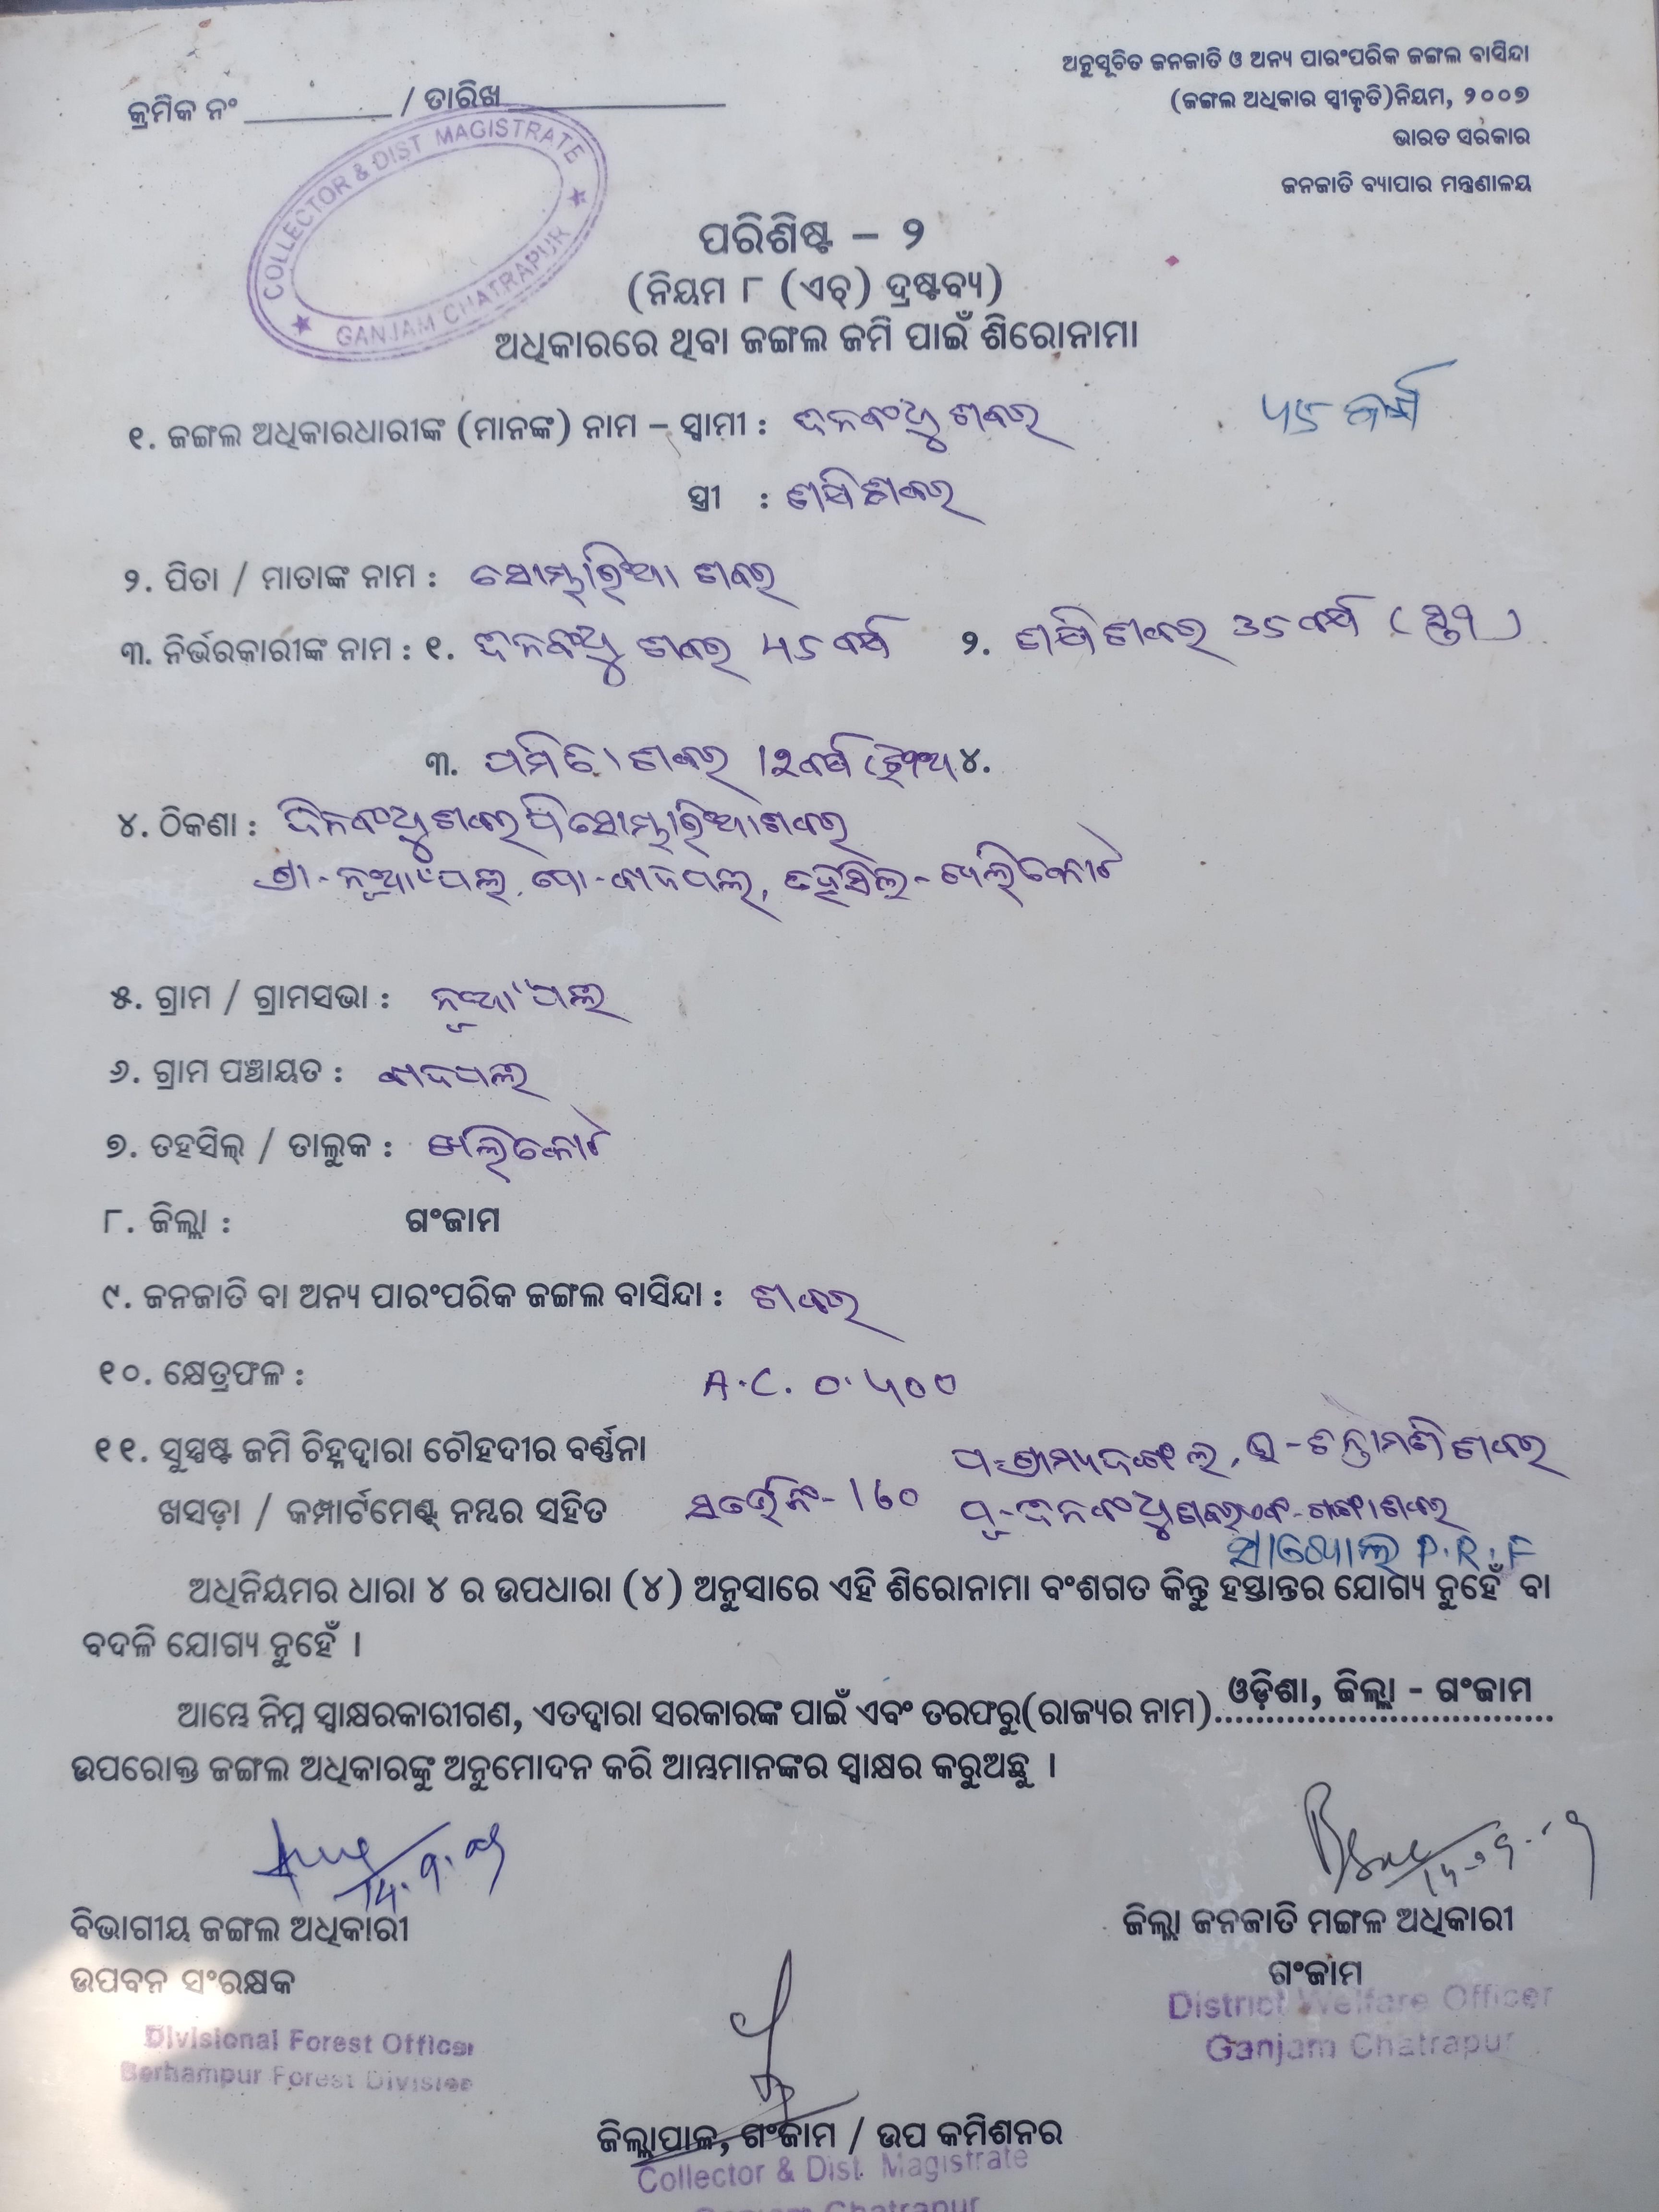 ଅନୁସୂଚିତ ଜନଜାତି ଓ ଅନ୍ୟ ପାରଂପରିକ ଜଙ୍ଗଲ ବାସିନ୍ଦା
(ଜଙ୍ଗଲ ଅଧିକାର ସ୍ଵୀକୃତି)ନିୟମ, ୨୦୦୭
ଭାରତ ସରକାର
ଜନଜାତି ବ୍ୟାପାର ମନ୍ତ୍ରଣାଳୟ
କ୍ରମିକ ନଂ / ତାରିଖ
COLLECTOR & DIST MAGISTRATE
GANJAM CHATRAPUR
ପରିଶିଷ୍ଟ – ୨
(ନିୟମ ୮ (ଏଚ୍) ଦ୍ରଷ୍ଟବ୍ୟ)
ଅଧିକାରରେ ଥିବା ଜଙ୍ଗଲ ଜମି ପାଇଁ ଶିରୋନାମା
୧. ଜଙ୍ଗଲ ଅଧିକାରଧାରୀଙ୍କ (ମାନଙ୍କ) ନାମ – ସ୍ଵାମୀ : ଦିନବଂଧୁ ଶବର ୪୫ ବର୍ଷ
ସ୍ତ୍ରୀ : ଶଶି ଶବର
୨. ପିତା / ମାତାଙ୍କ ନାମ : ସୋମ୍ଭାରିଆ ଶବର
୩. ନିର୍ଭରକାରୀଙ୍କ ନାମ : ୧. ଦିନବଂଧୁ ଶବର ୪୫ ବର୍ଷ ୨. ଶଶି ଶବର 35 ବର୍ଷ (ସ୍ତ୍ରୀ)
୩. ଶବର 12 ବର୍ଷ ୪.
୪. ଠିକଣା : ଦିନବଂଧୁ ଶବର ପି ସୋମ୍ଭାରିଆ ଶବର
ଗ୍ରା - ନୂଆପଲ୍ଲୀ, ପୋ - ତହସିଲ - ଖଲିକୋଟ
୫. ଗ୍ରାମ / ଗ୍ରାମସଭା : ନୂଆପଲ୍ଲୀ
୬. ଗ୍ରାମ ପଞ୍ଚାୟତ :
୭. ତହସିଲ୍ / ତାଲୁକ : ଖଲିକୋଟ
୮. ଜିଲ୍ଲା : ଗଂଜାମ
୯. ଜନଜାତି ବା ଅନ୍ୟ ପାରଂପରିକ ଜଙ୍ଗଲ ବାସିନ୍ଦା : ଶବର
୧୦. କ୍ଷେତ୍ରଫଳ : A.C. ୦.୪୦୦
୧୧. ସୁସ୍ପଷ୍ଟ ଜମି ଚିହ୍ନଦ୍ୱାରା ଚୌହଦୀର ବର୍ଣ୍ଣନା
ଖସଡ଼ା / କମ୍ପାର୍ଟମେଣ୍ଟ୍ ନମ୍ବର ସହିତ - 160 ପୂ - ଦିନବଂଧୁ ଶବର
P.R.F
ଅଧିନିୟମର ଧାରା ୪ ର ଉପଧାରା (୪) ଅନୁସାରେ ଏହି ଶିରୋନାମା ବଂଶଗତ କିନ୍ତୁ ହସ୍ତାନ୍ତର ଯୋଗ୍ୟ ନୁହେଁ ବା
ବଦଳି ଯୋଗ୍ୟ ନୁହେଁ ।
ଆମ୍ଭେ ନିମ୍ନ ସ୍ୱାକ୍ଷରକାରୀଗଣ, ଏତଦ୍ୱାରା ସରକାରଙ୍କ ପାଇଁ ଏବଂ ତରଫରୁ(ରାଜ୍ୟର ନାମ) ଓଡ଼ିଶା, ଜିଲ୍ଲା - ଗଂଜାମ
ଉପରୋକ୍ତ ଜଙ୍ଗଲ ଅଧିକାରଙ୍କୁ ଅନୁମୋଦନ କରି ଆମ୍ଭମାନଙ୍କର ସ୍ୱାକ୍ଷର କରୁଅଛୁ ।
ବିଭାଗୀୟ ଜଙ୍ଗଲ ଅଧିକାରୀ
ଉପବନ ସଂରକ୍ଷକ
Divisional Forest Officer
Berhampur Forest Division
ଜିଲ୍ଲା ଜନଜାତି ମଙ୍ଗଳ ଅଧିକାରୀ
ଗଂଜାମ
District Welfare Officer
Ganjam Chatrapur
ଜିଲ୍ଲାପାଳ, ଗଂଜାମ / ଉପ କମିଶନର
Collector & Dist. Magistrate
Ganjam Chatrapur